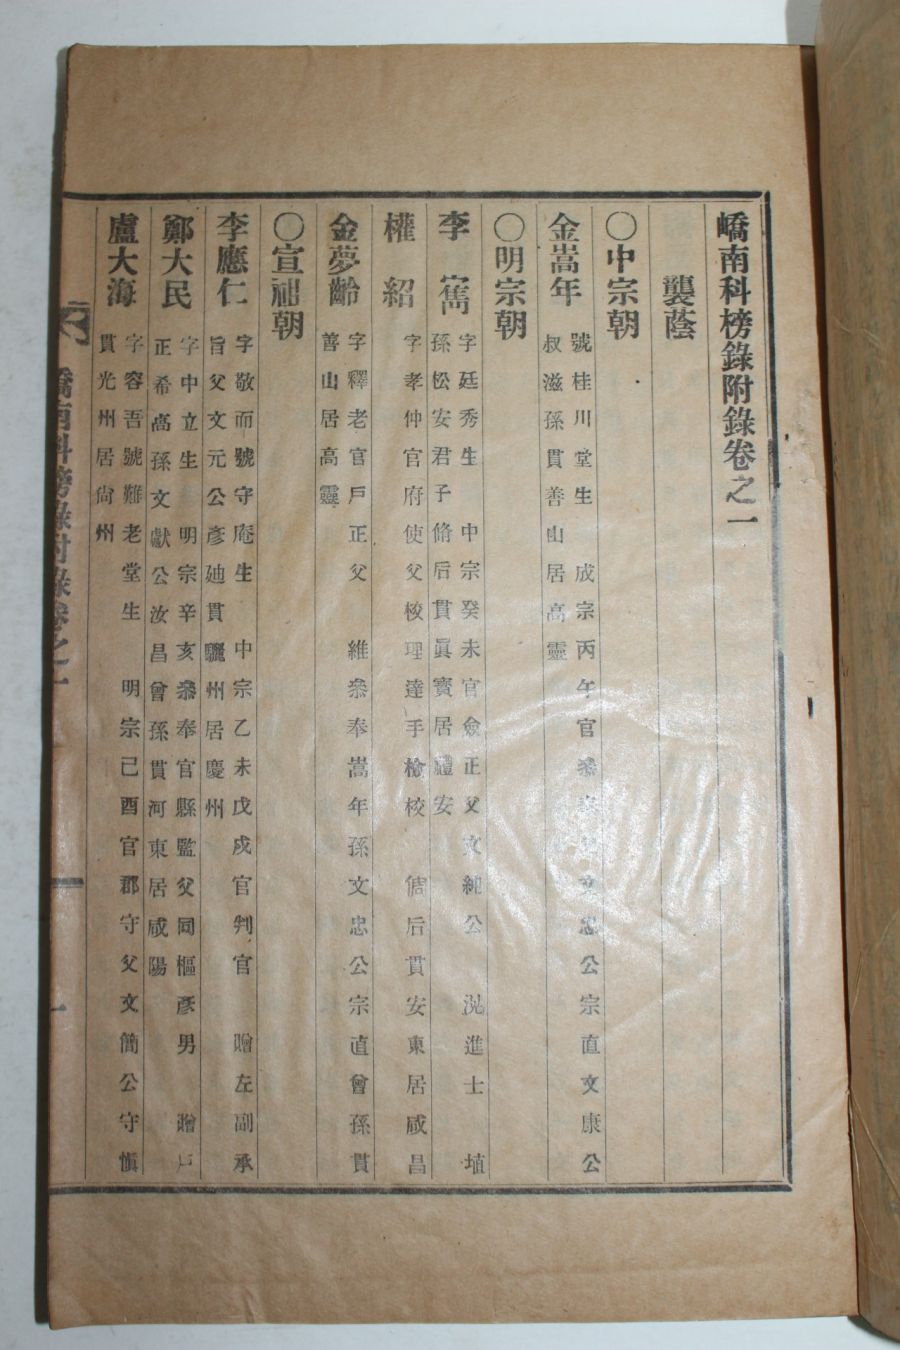 嶠南科榜錄附錄卷之一
襲蔭
〇中宗朝
金嵩年
號桂川堂生 成宗丙午官叅奉父文忠公宗直文康公
叔滋孫貫善山居高靈
〇明宗朝
李寯
字廷秀生 中宗癸未官僉正父文純公 滉進士 埴
孫松安君子脩后貫眞寶居禮安
權紹
字孝仲官府使父校理達手檢校 儋后貫安東居咸昌
金夢齡
字釋老官戶正父 維叅奉嵩年孫文忠公宗直曾孫貫
善山居高靈
〇宣祖朝
李應仁
字敬而號守庵生 中宗乙未戊戍官判官 贈左副承
旨父文元公彥迪貫驪州居慶州
鄭大民
字中立生 明宗辛亥叅奉官縣監父同樞彥男 贈戶
正希卨孫文獻公汝昌曾孫貫河東居咸陽
盧大海
字容吾號難老堂生 明宗己酉官郡守父文簡公守愼
貫光州居尙州
嶠南科榜錄附錄卷之一
一